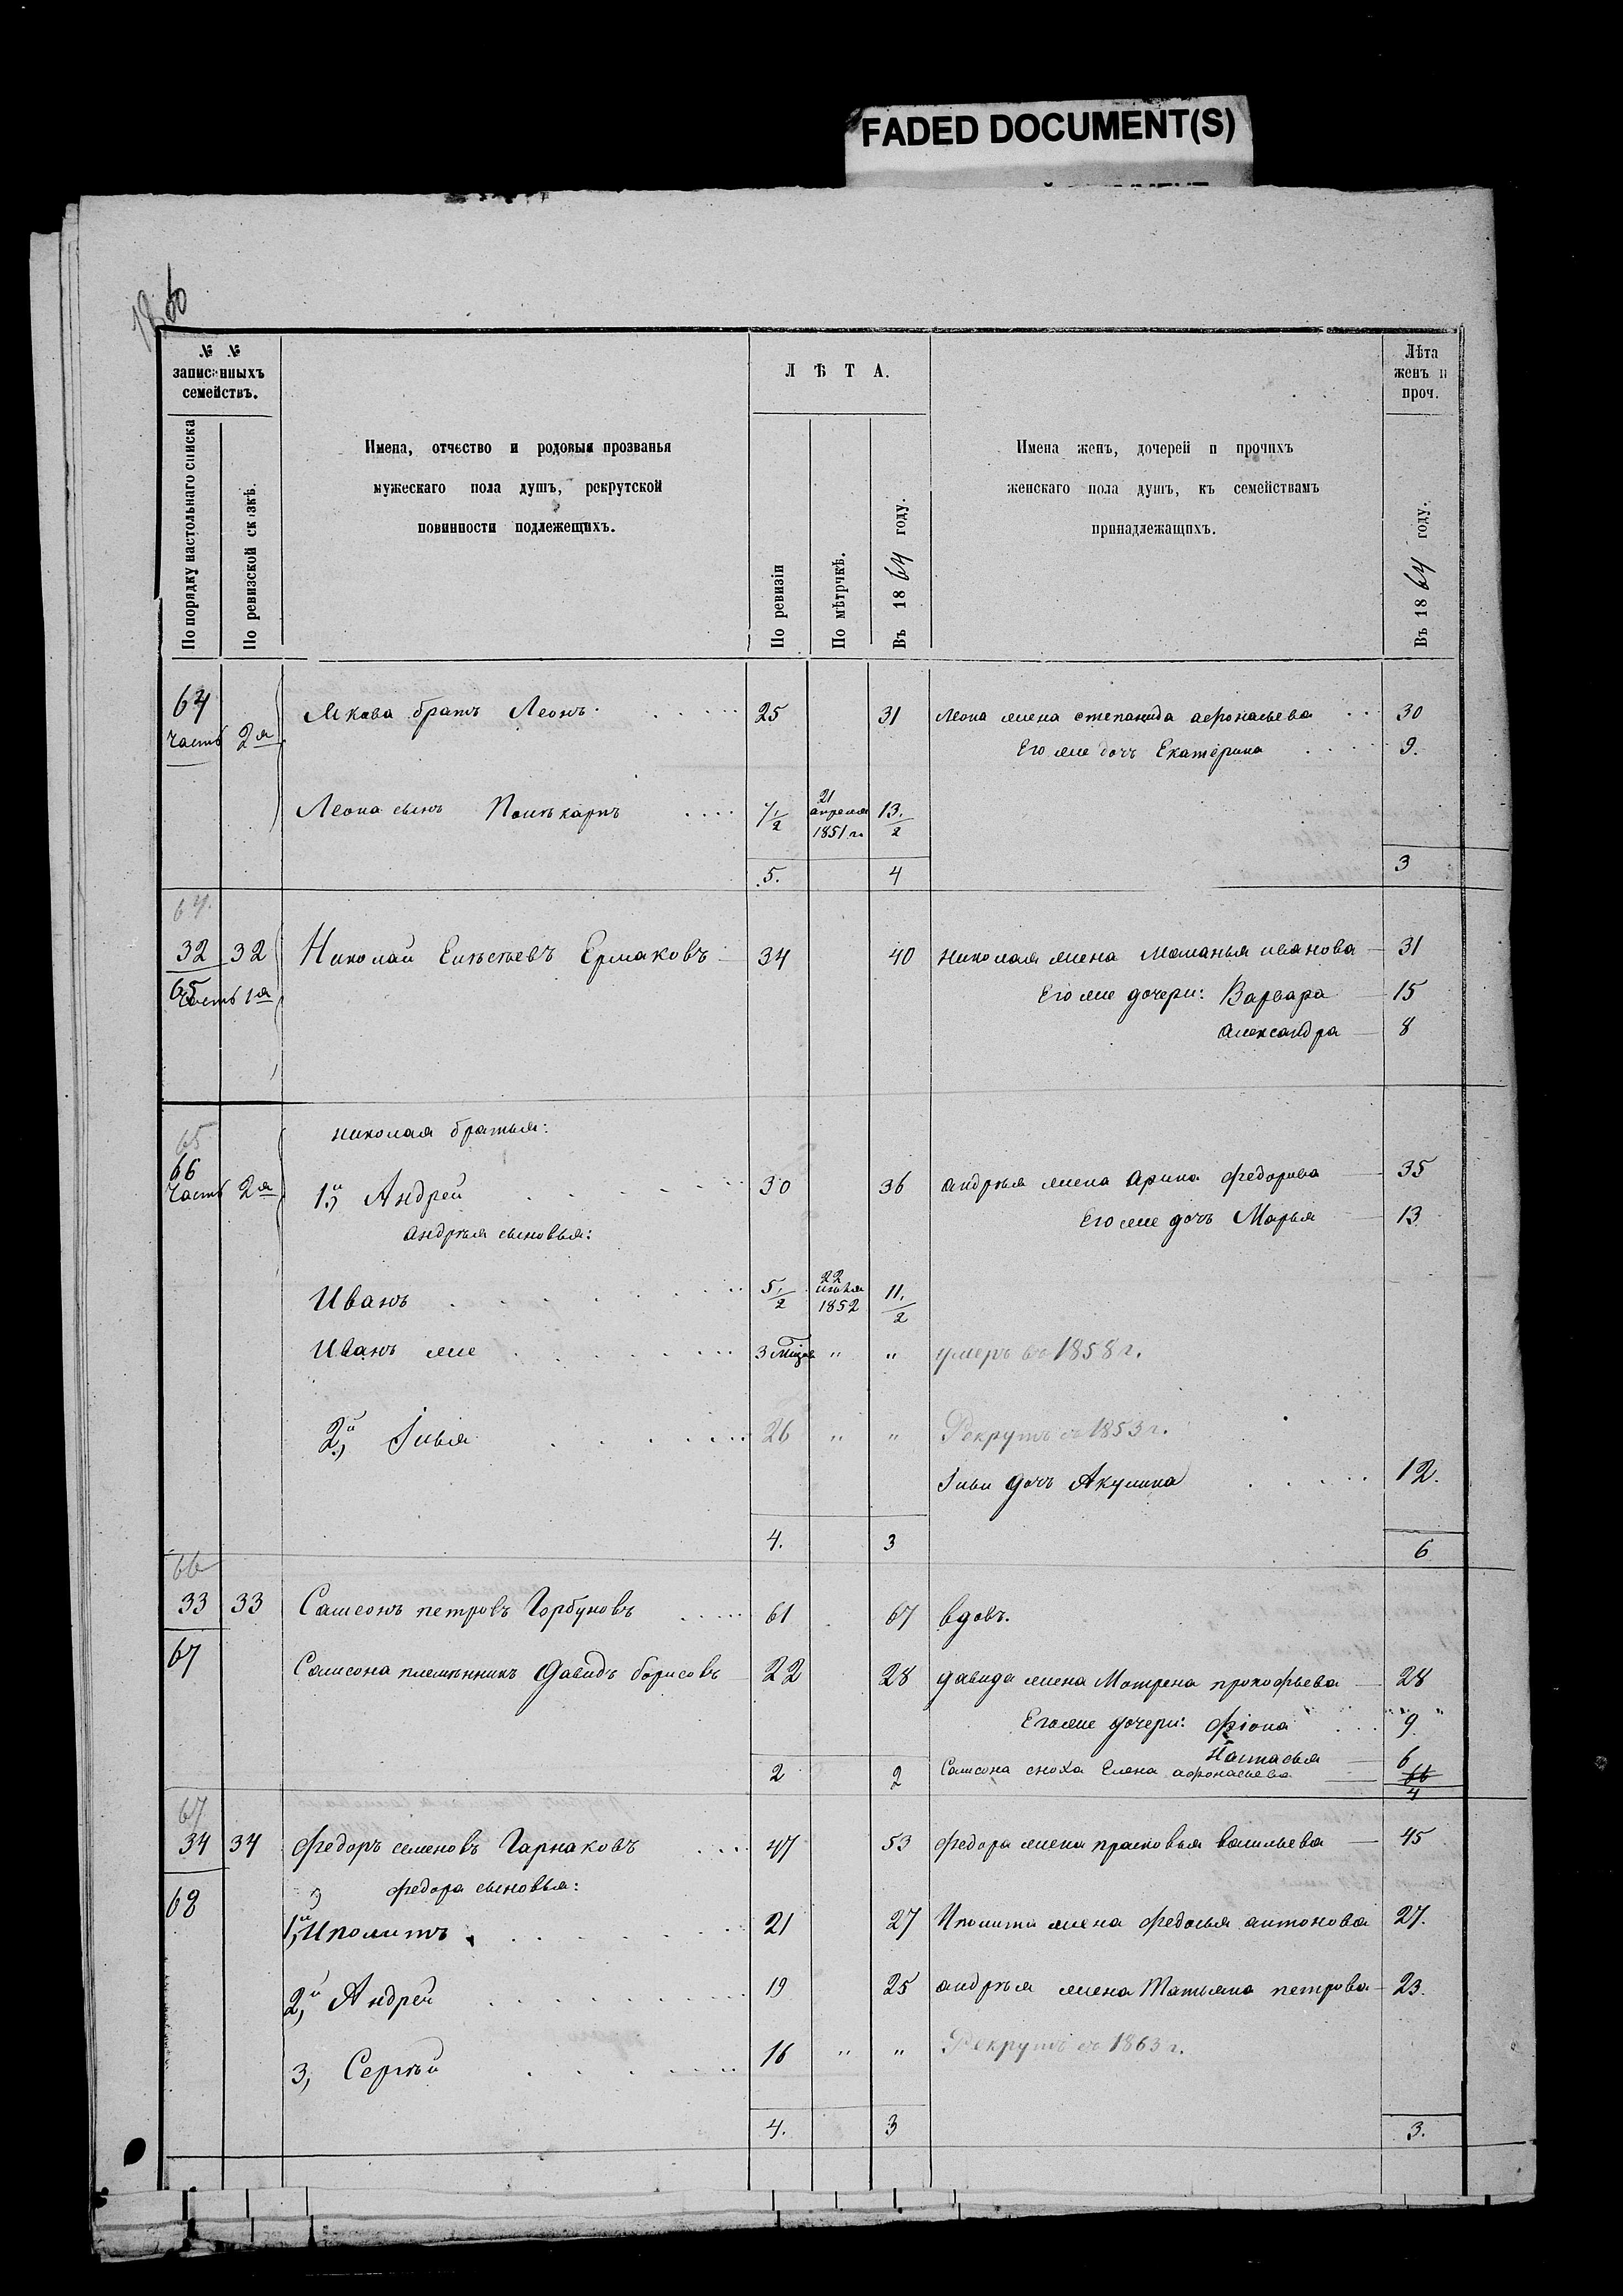 FADED DOCUMENT(S)
№ №
записанныхъ
семействъ.
По порядку настольнаго списка
По ревизской сказкѣ.
Имена, отчество и родовыя прозванья
мужескаго пола душъ, рекрутской
повинности подлежещихъ.
ЛѢТА.
По ревизіи
По мѣтрчкѣ.
Въ 1864 году.
Имена женъ, дочерей и прочихъ
женскаго пола душъ, къ семействамъ
принадлежащихъ.
Лѣта
женъ и
проч.
Въ 1864 году.
64 Якова братъ Леонъ 25 31 Леона жена степанида афонасьева 30
часть 2я Его же дочь Екатерина 9.
Леона сынъ Поликарпъ 7 1/2 21 апреля 1851 г. 13. 1/2
5. 4 3
64.
32 32 Николай Елисеевъ Ермаковъ 34 40 Николая жена Маланья иванова 31
65 часть 1я Его же дочери: Варвара 15
Александра 8
65 николая братья:
66
часть 2я 1й, Андрей 30 36 андрѣя жена Арина федорова 35
андрѣя сыновья: Его же дочь Марья 13
Иванъ 5. 1/2 22 1852 11. 1/2
Иванъ же 3 " " умеръ въ 1858 г.
2й, Илья 26 " " Рекрутъ съ 1853 г.
Ильи дочь Акулина 12.
4. 3 6
66
33 33 Самсонъ петровъ Горбуновъ 61 67 вдовъ.
67 Самсона племянникъ Давидъ борисовъ 22 28 давида жена Матрена прокофьева 28
Его же дочери: Фіона 9
Настасья 6
2 2 Самсона сноха Елена афонасьева 66
4
67
34 34 Федоръ семеновъ Гарнаковъ 47 53 федора жена прасковья васильева 45
68 федора сыновья:
1й, Иполитъ 21 27 Иполита жена Федосья антонова 27.
2й, Андрей 19 25 андрѣя жена Татьяна петрова 23.
3, Сергѣй 16 " " Рекрутъ съ 1863 г.
4. 3 3.